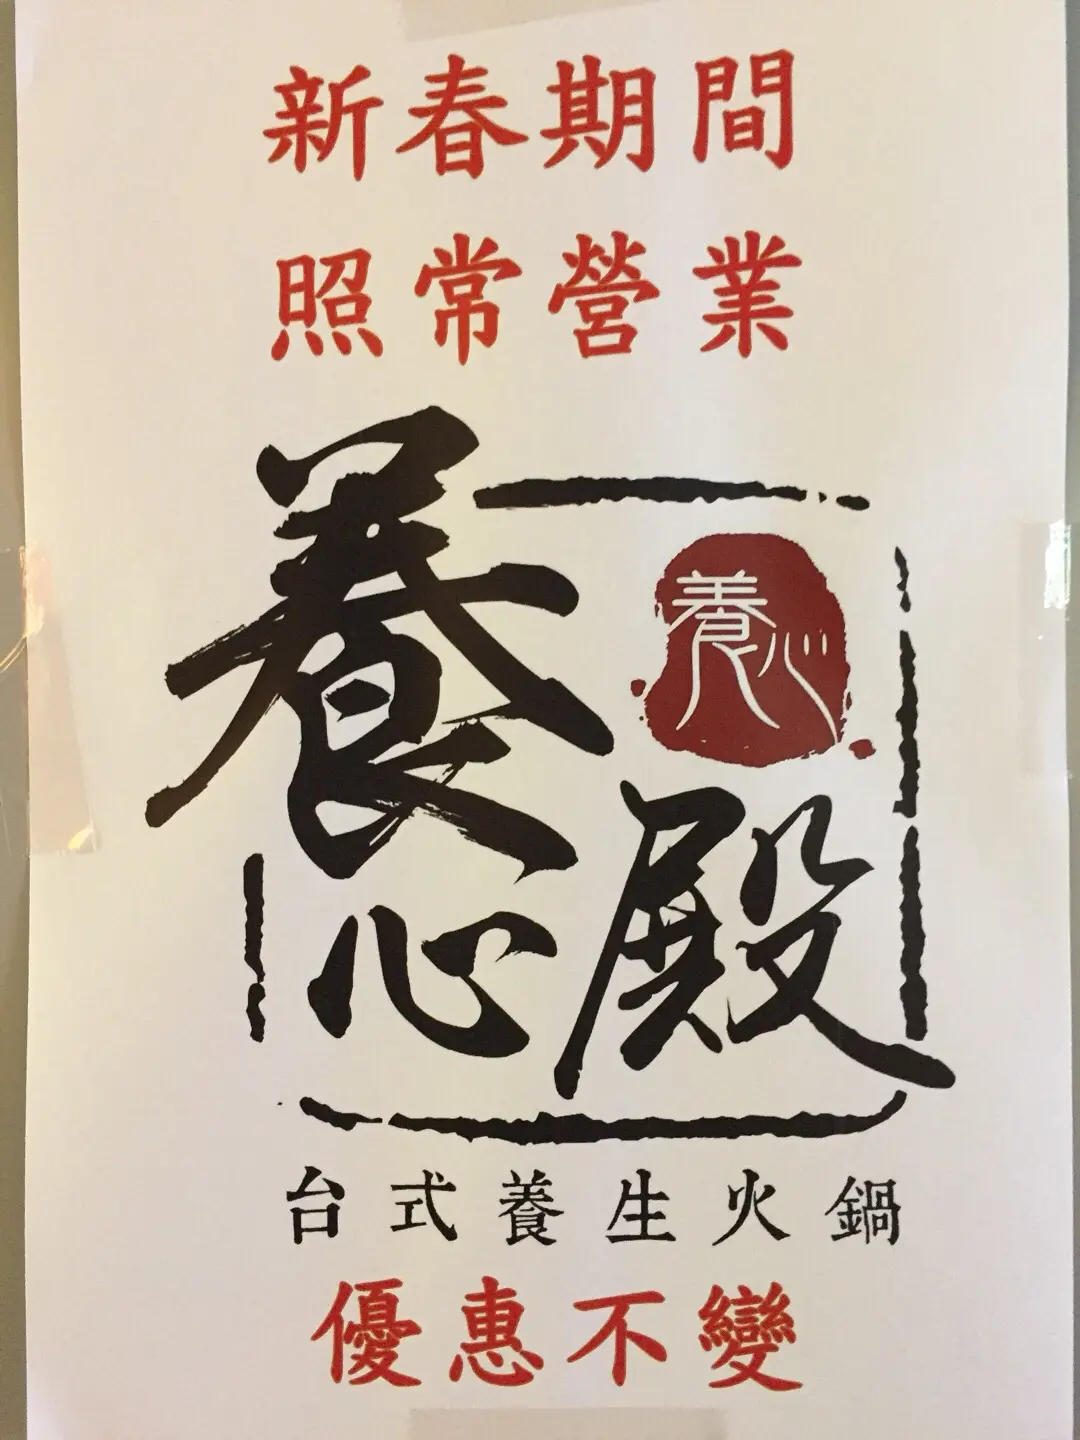 新春期間
照常營業
養心殿
養心
台式養生火鍋
優惠不變